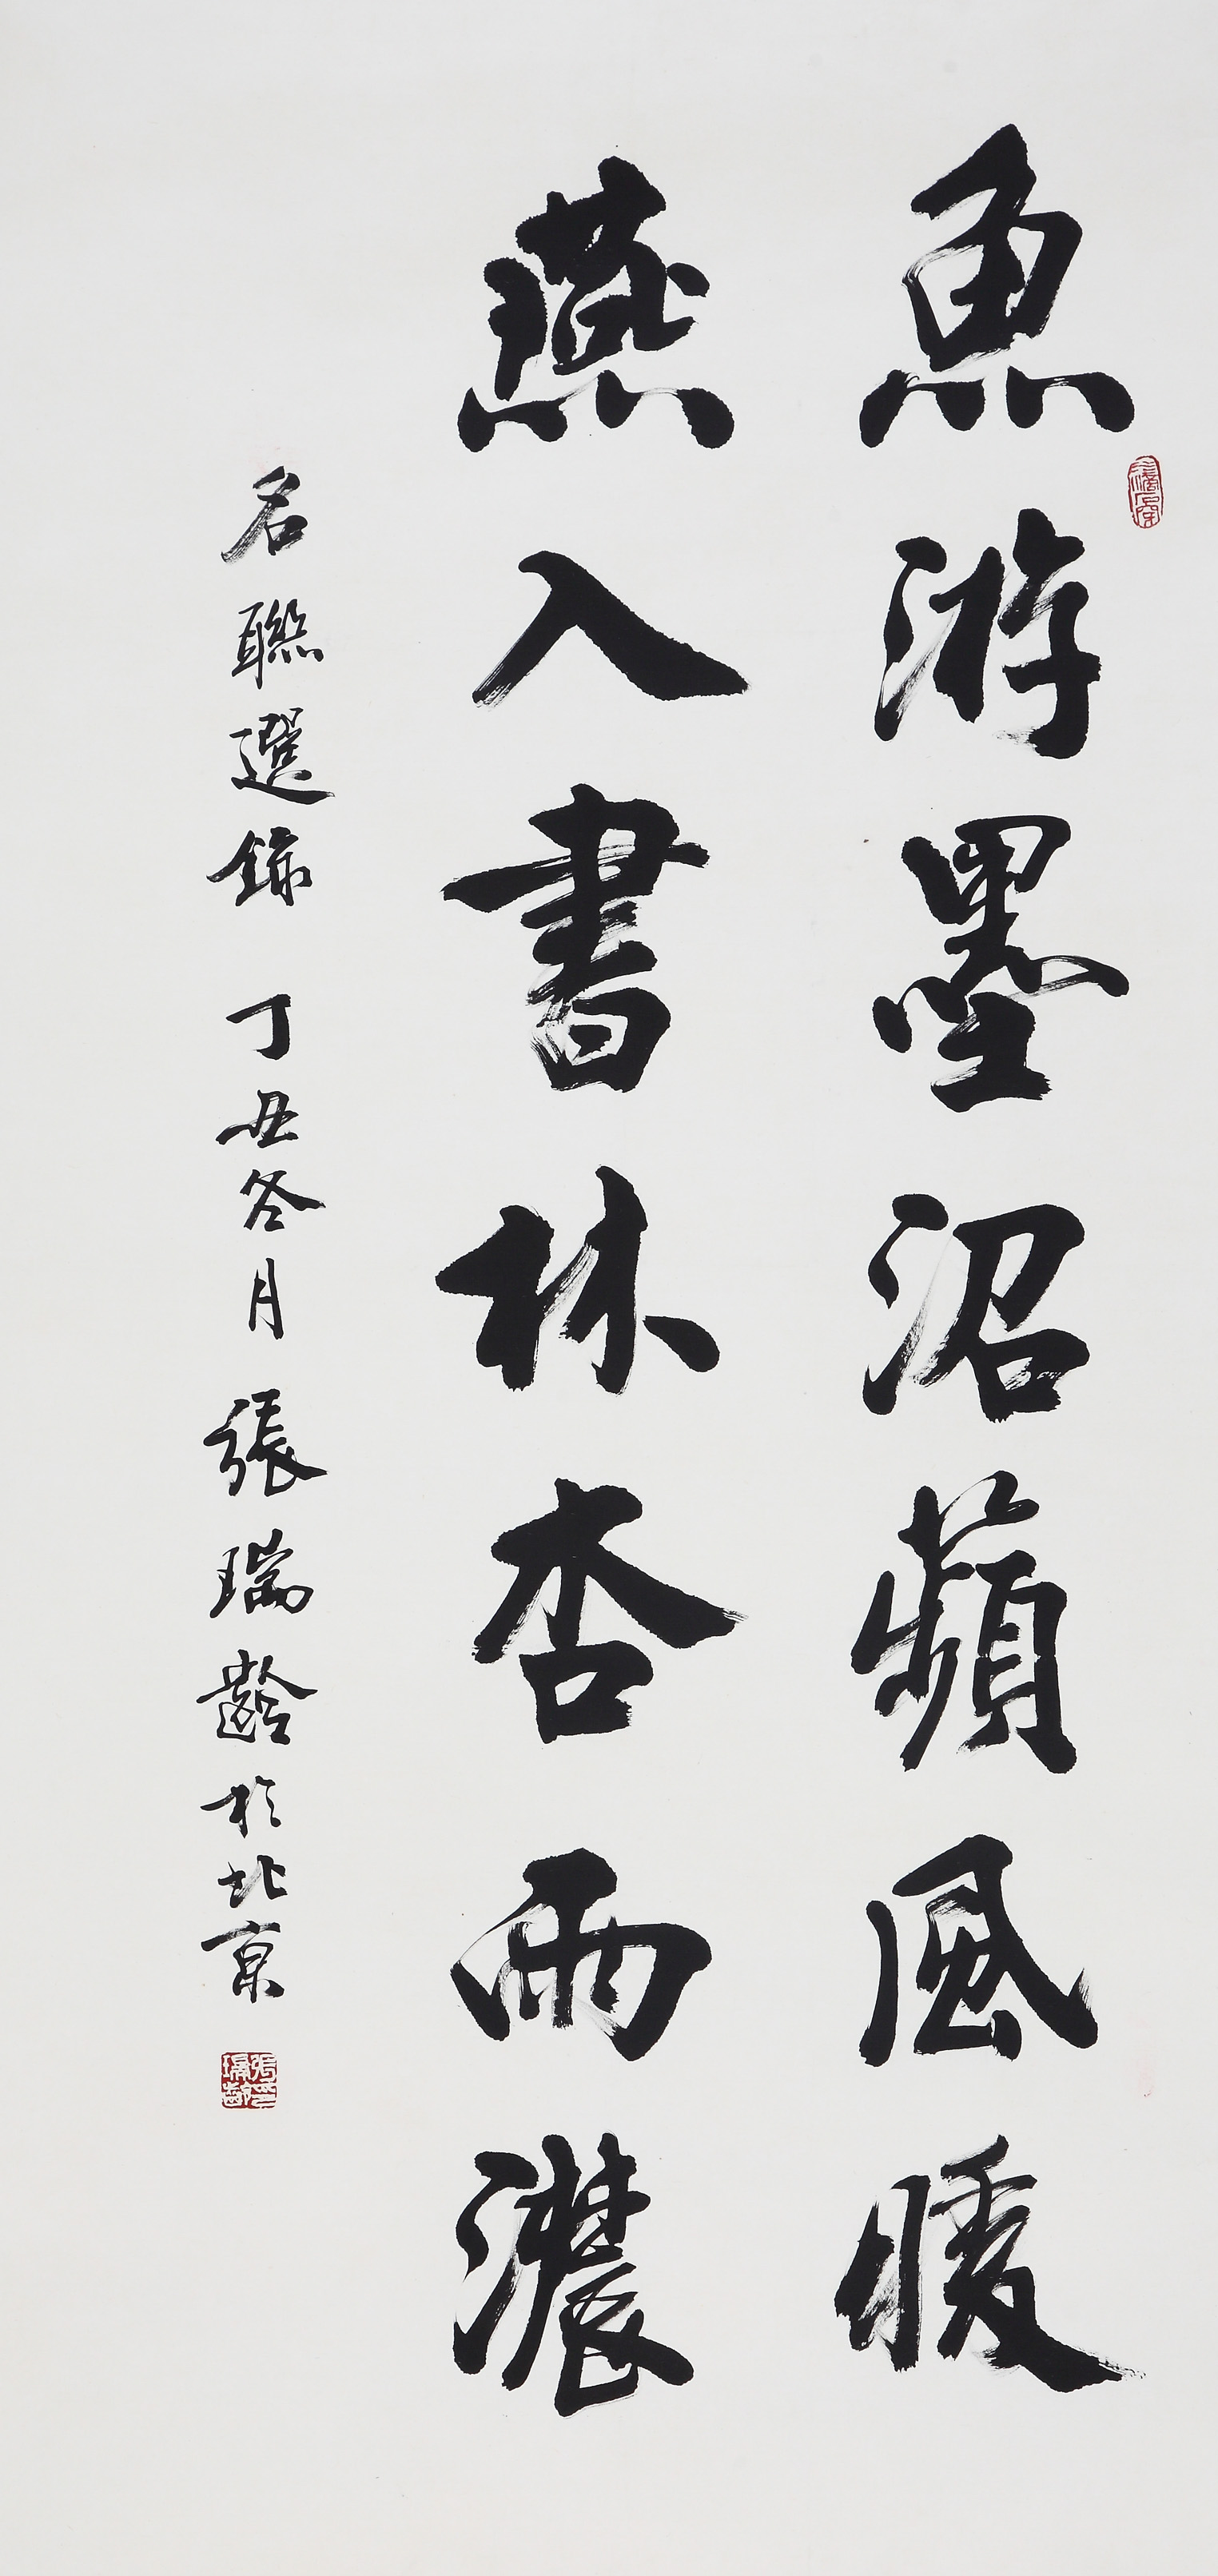 魚游墨沼蘋風暖
燕入書林杏雨濃
名聯選錄 丁丑冬月 張瑞齡於北京